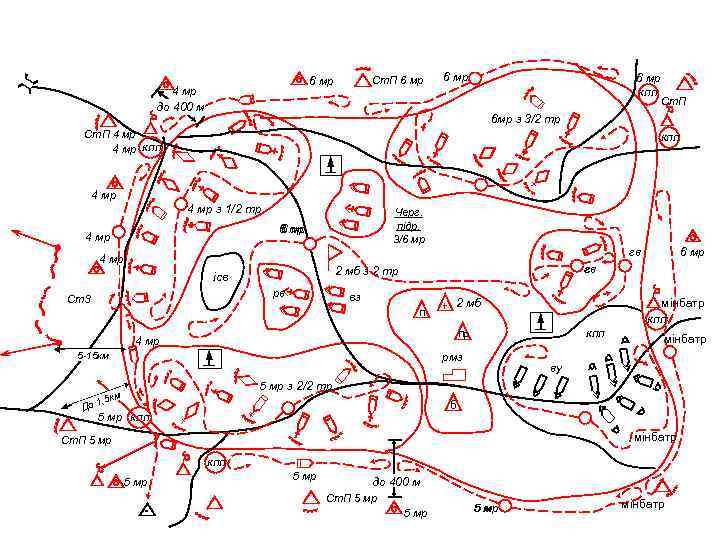 6 мр
СтП 6 мр
6 мр
6 мр
кпп
СтП
4 мр
до 400 м
6мр з 3/2 тр
СтП 4 мр
4 мр
кпп
кпп
4 мр
4 мр з 1/2 тр
Черг.
підр.
3/6 мр
4 мр
гв
6 мр
4 мр
ісв
2 мб з 2 тр
гв
СтЗ
рв
вз
п
т
2 мб
мінбатр
кпп
пр
кпп
мінбатр
4 мр
5-15км
рмз
ву
5 мр з 2/2 тр
До 1,5км
б
5 мр
кпп
СтП 5 мр
мінбатр
кпп
5 мр
5 мр
до 400 м
СтП 5 мр
5 мр
5 мр
мінбатр